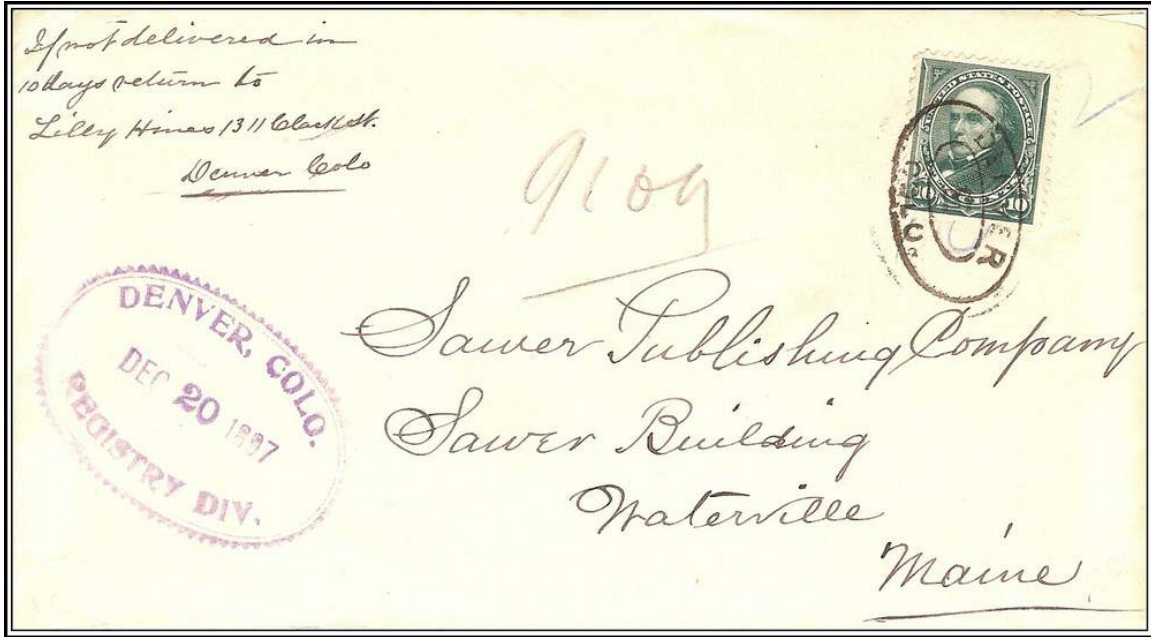 If not delivered in
10 days return to
Lilly Hines 1311 Clark St.
Denver Colo
UNITED STATES POSTAGE
10 TEN CENTS 10
DENVER
COLO.
9109
DENVER, COLO.
DEC 20 1897
REGISTRY DIV.
Sawer Publishing Company
Sawer Building
Waterville
Maine